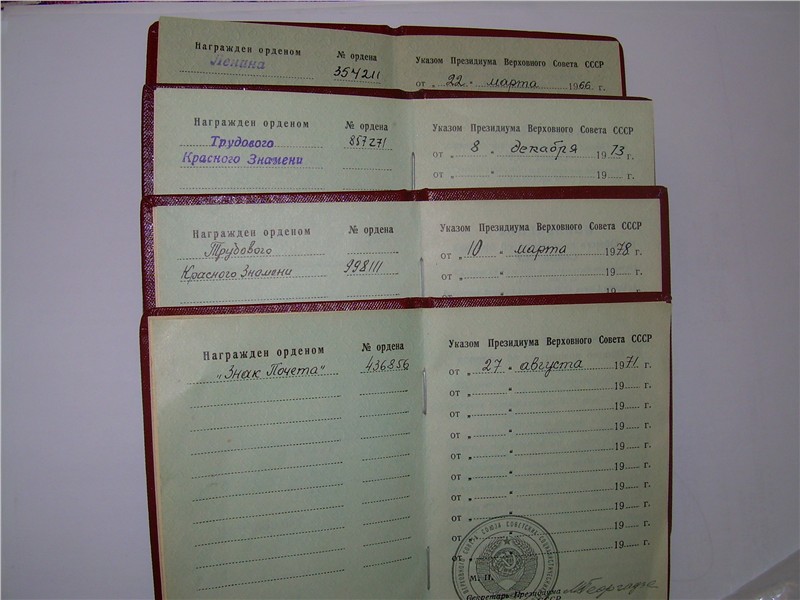 Награжден орденом № ордена Указом Президиума Верховного Совета СССР
Ленина 354211 от „22" марта 1966 г.
Награжден орденом № ордена Указом Президиума Верховного Совета СССР
Трудового 857271 от „8" декабря 1973 г.
Красного Знамени от „ " 19 г.
Награжден орденом № ордена Указом Президиума Верховного Совета СССР
Трудового от „10" марта 1978 г.
Красного Знамени 998111 от „ " 19 г.
Награжден орденом № ордена Указом Президиума Верховного Совета СССР
„Знак Почета" 436856 от „27" августа 1971 г.
от „ " 19 г.
от „ " 19 г.
от „ " 19 г.
от „ " 19 г.
от „ " 19 г.
от „ " 19 г.
от „ " 19 г.
от „ " 19 г.
М. П.
Секретарь Президиума